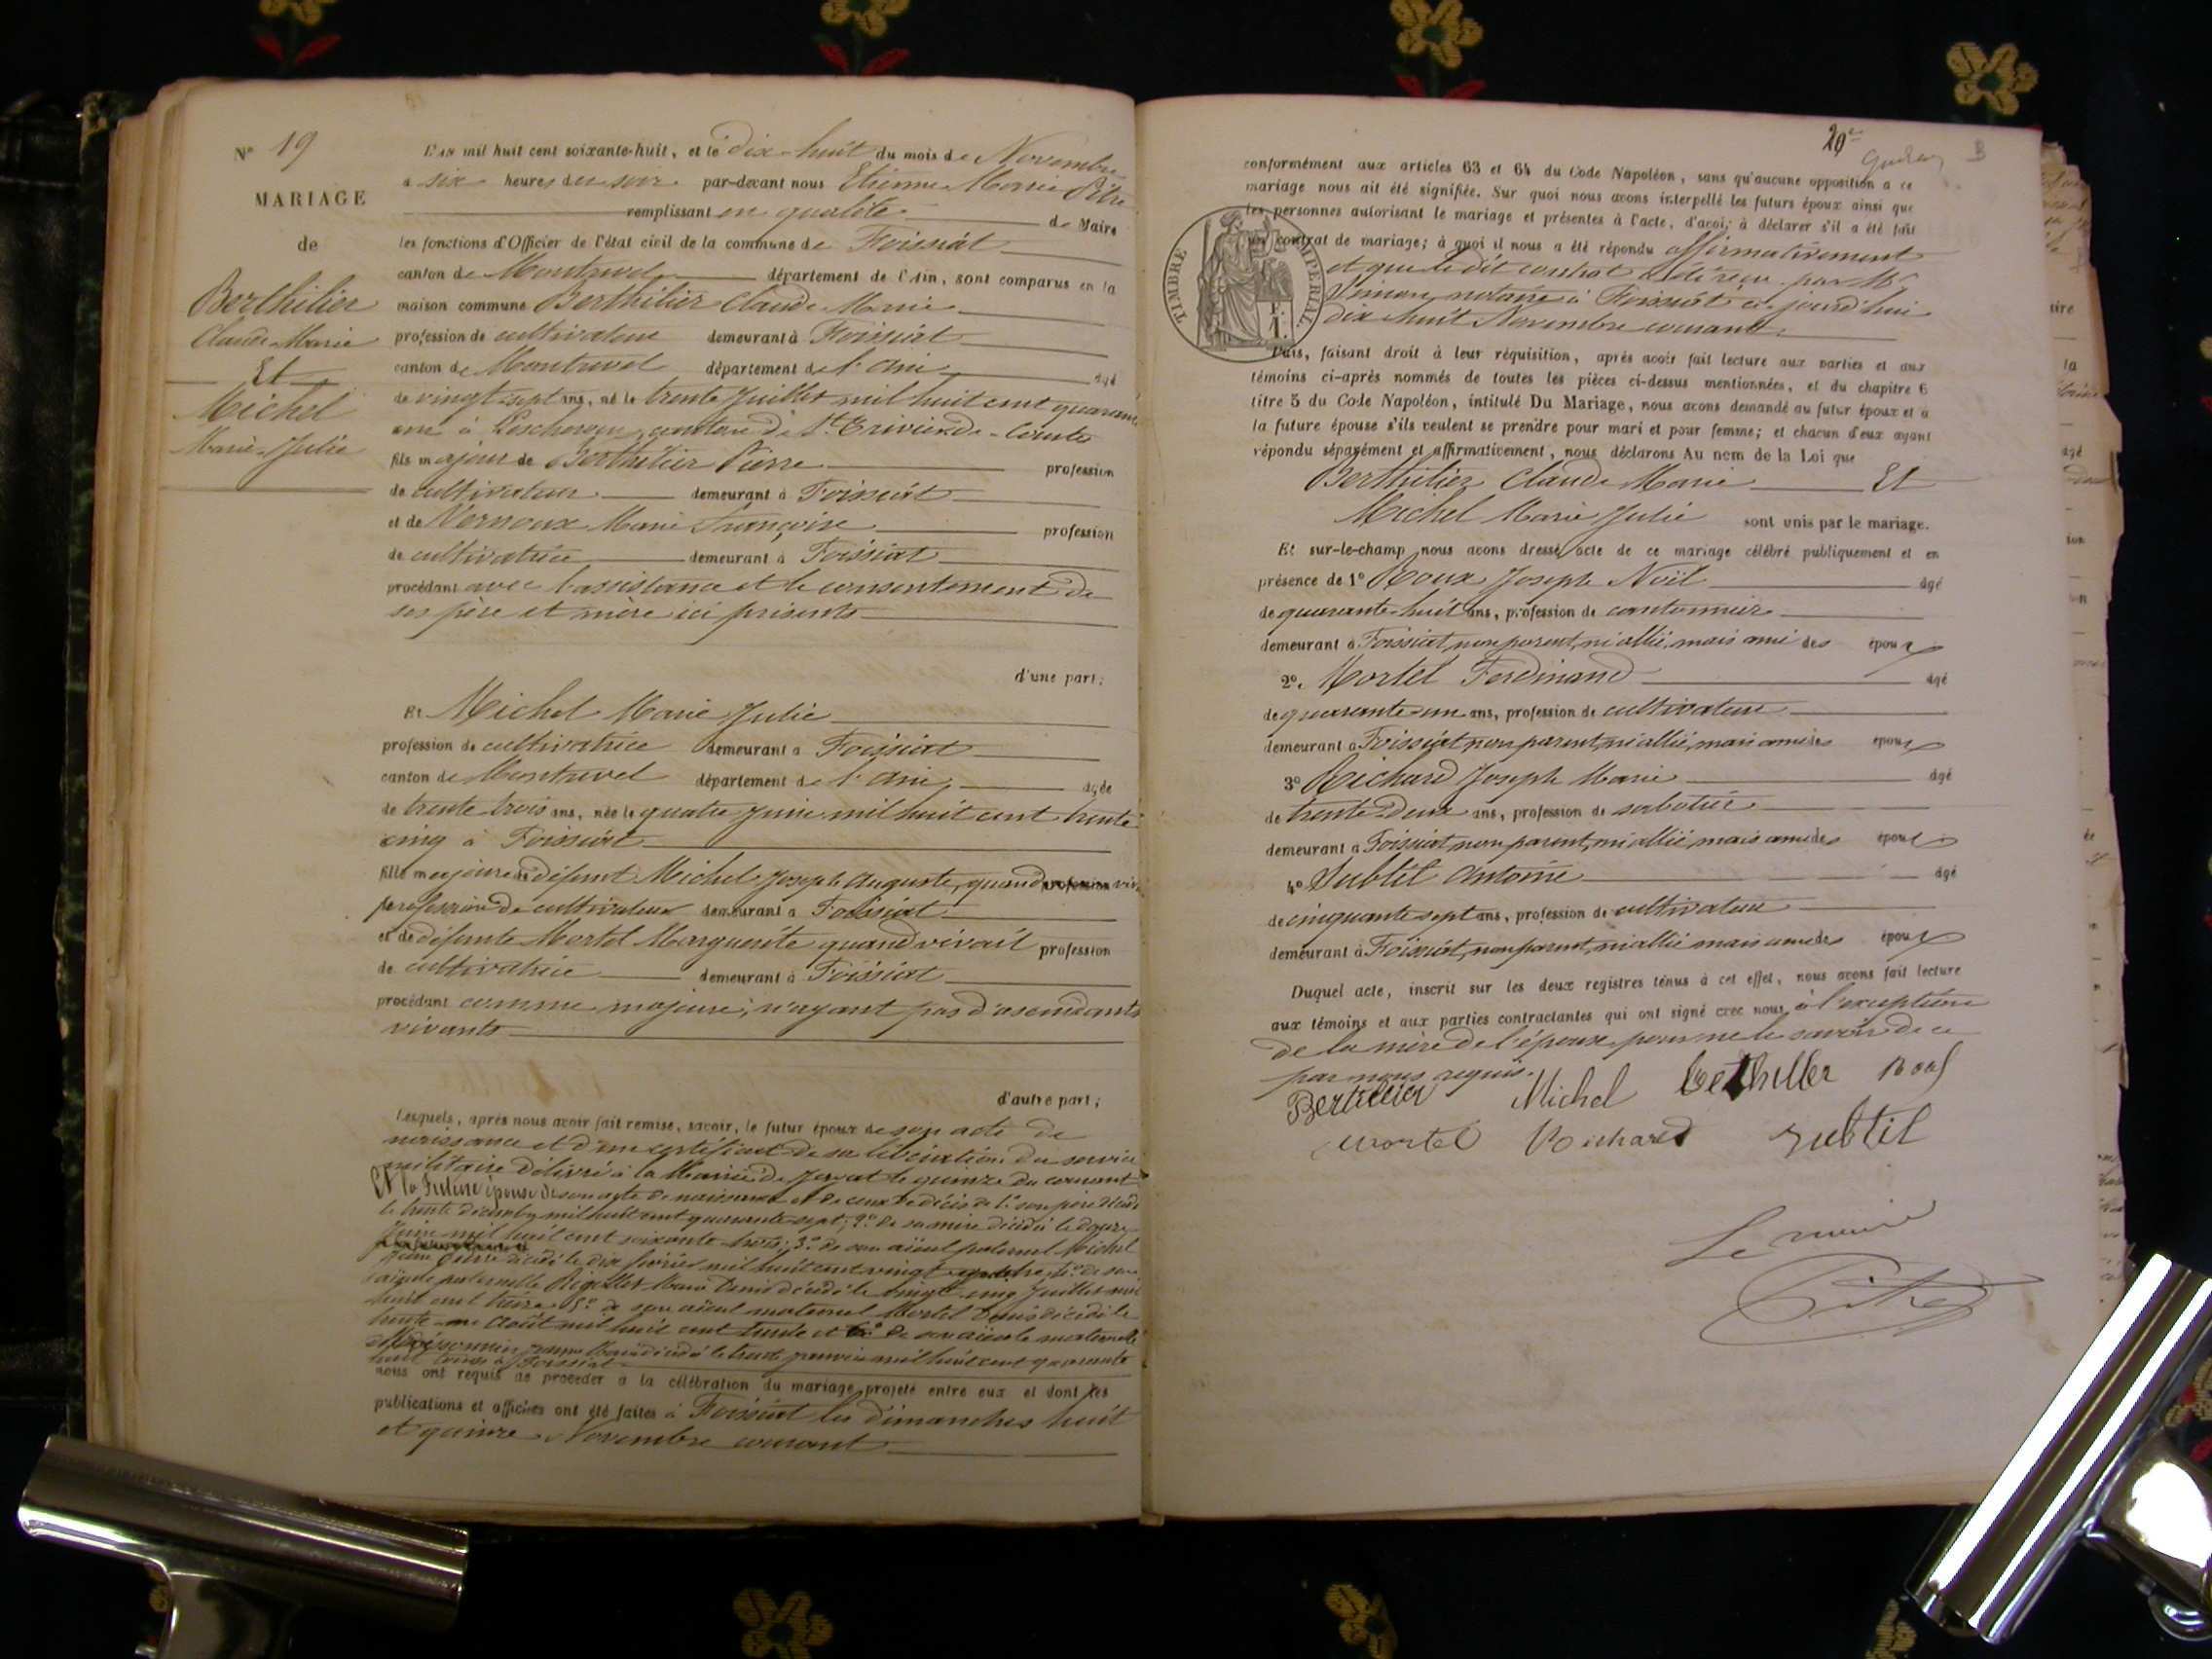 N° 19
MARIAGE
de
Berthilier
Claude Marie
Et
Michel
Marie Julie
L'AN mil huit cent soixante-huit, et le dix-huit du mois de Novembre
à six heures du soir par-devant nous Etienne Marie Pitre
remplissant en qualité de Maire
les fonctions d'Officier de l'état civil de la commune de Foissiat
canton de Montrevel département de l'Ain, sont comparus en la
maison commune Berthilier Claude Marie
profession de cultivateur demeurant à Foissiat
canton de Montrevel département de l'Ain âgé
de vingt-sept ans, né le trente Juillet mil huit cent quarante
un à Lescheroux, canton de St Trivier-de-Courtes
fils majeur de Berthilier Pierre profession
de cultivateur demeurant à Foissiat
et de Vernoux Marie Françoise profession
de cultivatrice demeurant à Foissiat
procédant avec l'assistance et le consentement de
ses père et mère ici présents
d'une part;
Et Michel Marie Julie
profession de cultivatrice demeurant à Foissiat
canton de Montrevel département de l'Ain, âgée
de trente trois ans, née le quatre Juin mil huit cent trente
cinq à Foissiat
fille majeure de défunt Michel Joseph Auguste, quand vivait
profession de cultivateur demeurant à Foissiat
et de défunte Mortel Marguerite quand vivait profession
de cultivatrice demeurant à Foissiat
procédant comme majeure, n'ayant pas d'ascendants
vivants
d'autre part;
Lesquels, après nous avoir fait remise, savoir, le futur époux de son acte de
naissance et d'un certificat de sa libération du service
militaire délivré à la Mairie de Jayat le quinze du courant
Et la Future épouse de son acte de naissance et de ceux de décès de 1° son père décédé
le trente décembre mil huit cent quarante sept; 2° de sa mère décédée le douze
Juin mil huit cent soixante trois; 3° de son aïeul paternel Michel
Jean Pierre décédé le dix février mil huit cent vingt quatre; 4° de son
aïeule paternelle Marie Denis décédée le vingt cinq Juillet mil
huit cent treize 5° de son aïeul maternel Mortel Denis décédé le
trente un Août mil huit cent trente et 6° de son aïeule maternelle
Marie décédée le trente janvier mil huit cent quarante
à Foissiat
nous ont requis de procéder à la célébration du mariage projeté entre eux et dont les
publications et affiches ont été faites à Foissiat les dimanches huit
et quinze Novembre courant
20e
B
conformément aux articles 63 et 64 du Code Napoléon, sans qu'aucune opposition à ce
mariage nous ait été signifiée. Sur quoi nous avons interpellé les futurs époux ainsi que
les personnes autorisant le mariage et présentes à l'acte, d'avoir à déclarer s'il a été fait
un contrat de mariage; à quoi il nous a été répondu affirmativement
et que le dit contrat a été reçu par Me
Simon, notaire à Foissiat ce jourd'hui
dix huit Novembre courant.
TIMBRE IMPERIAL
Puis, faisant droit à leur réquisition, après avoir fait lecture aux parties et aux
témoins ci-après nommés de toutes les pièces ci-dessus mentionnées, et du chapitre 6
titre 5 du Code Napoléon, intitulé Du Mariage, nous avons demandé au futur époux et à
la future épouse s'ils veulent se prendre pour mari et pour femme; et chacun d'eux ayant
répondu séparément et affirmativement, nous déclarons Au nom de la Loi que
Berthilier Claude Marie Et
Michel Marie Julie sont unis par le mariage.
Et sur-le-champ nous avons dressé acte de ce mariage célébré publiquement et en
présence de 1° Roux Joseph Noël âgé
de quarante-huit ans, profession de cantonnier
demeurant à Foissiat, non parent, ni allié, mais ami des époux
2°. Mortel Ferdinand âgé
de quarante-un ans, profession de cultivateur
demeurant à Foissiat non parent, ni allié, mais ami des époux
3° Richard Joseph Marie âgé
de trente-deux ans, profession de sabotier
demeurant à Foissiat non parent, ni allié mais ami des époux
4° Subtil Antoine âgé
de cinquante sept ans, profession de cultivateur
demeurant à Foissiat, non parent, ni allié mais ami des époux
Duquel acte, inscrit sur les deux registres tenus à cet effet, nous avons fait lecture
aux témoins et aux parties contractantes qui ont signé avec nous, à l'exception
de la mère de l'époux, pour ne le savoir de ce
par nous requis.
Bertilier Michel berthillier Roux
mortel Richard subtil
Le maire
Pitre